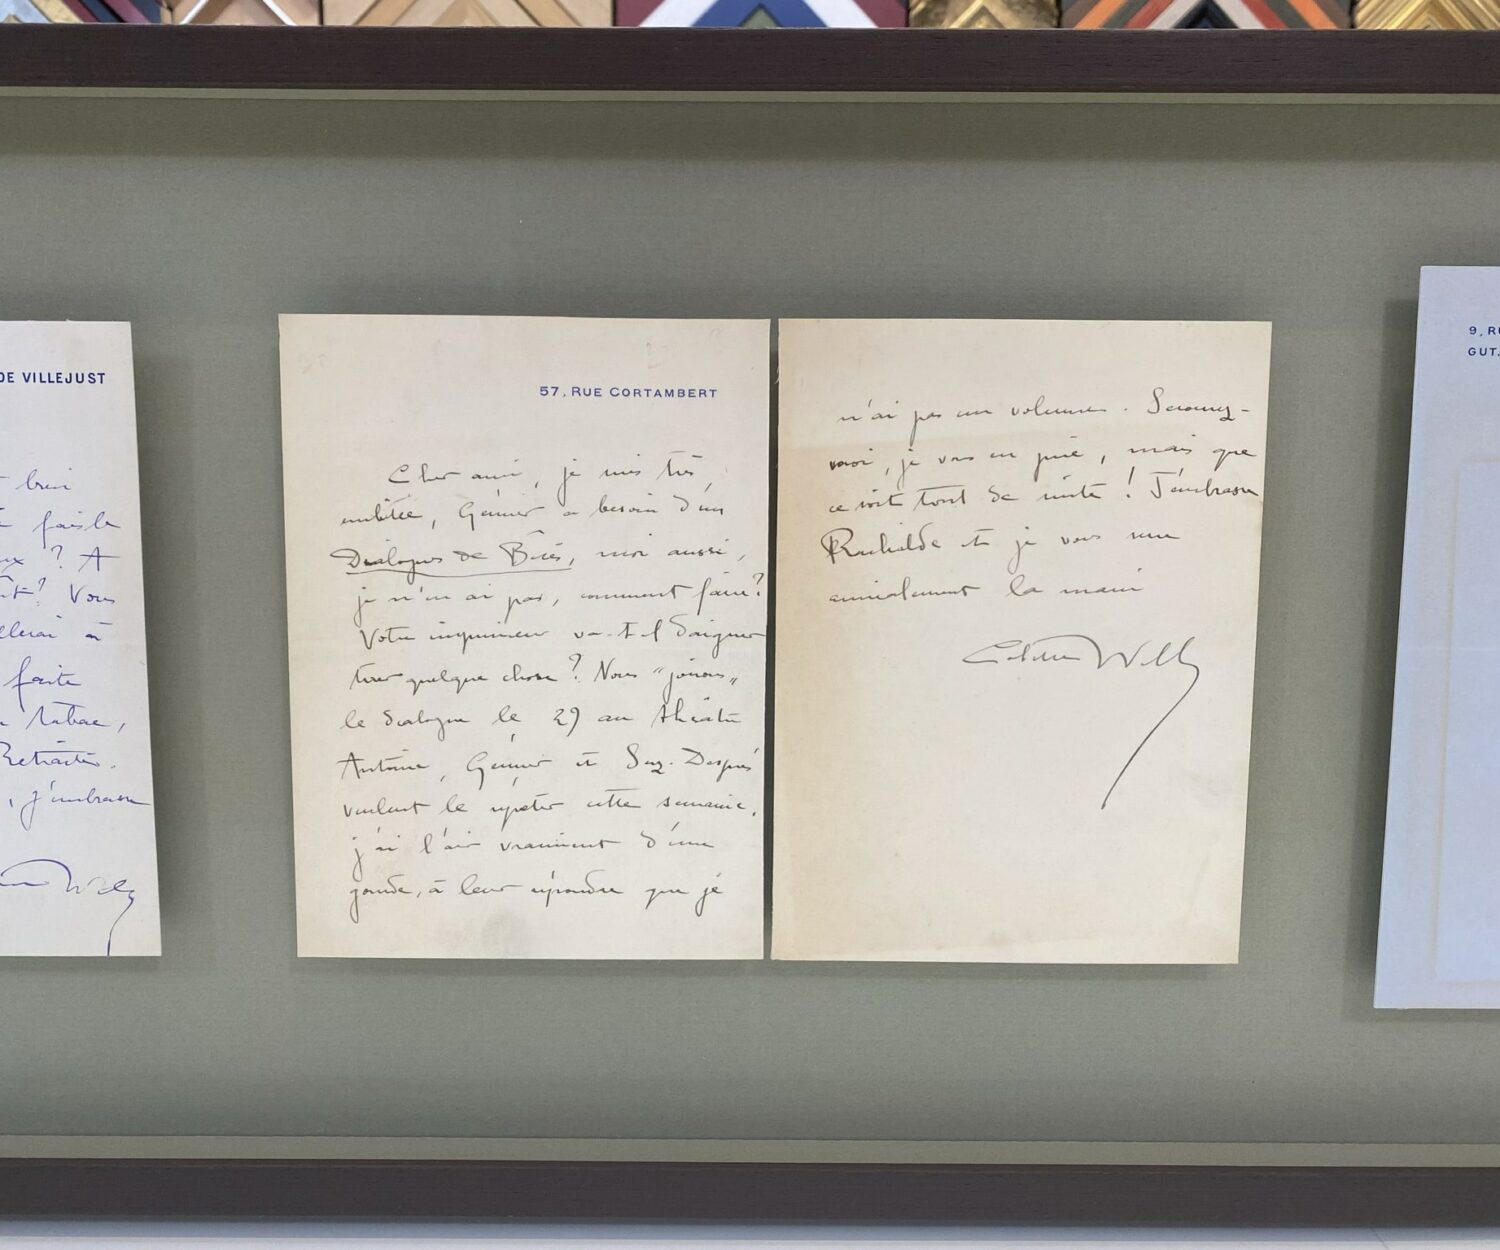 DE VILLEJUST
bien
faible
? A
? Vous
à
faite
tabac,
Retraite.
, j'embrasse
Willy
57, RUE CORTAMBERT
Cher ami, je suis très
embêtée, Gémier a besoin d'un
Dialogues de Bêtes, moi aussi,
je n'en ai pas, comment faire?
Votre imprimeur va-t-il daigner
tirer quelque chose? Nous "jouons"
le dialogue le 29 au théâtre
Antoine, Gémier et Suz. Desprès
veulent le répéter cette semaine,
j'ai l'air vraiment d'une
gourde, à leur répondre que je
n'ai pas un volume. Secourez-
moi, je vous en prie, mais que
ce soit tout de suite! J'embrasse
Rachilde et je vous serre
amicalement la main
Colette Willy
9, RU
GUT.